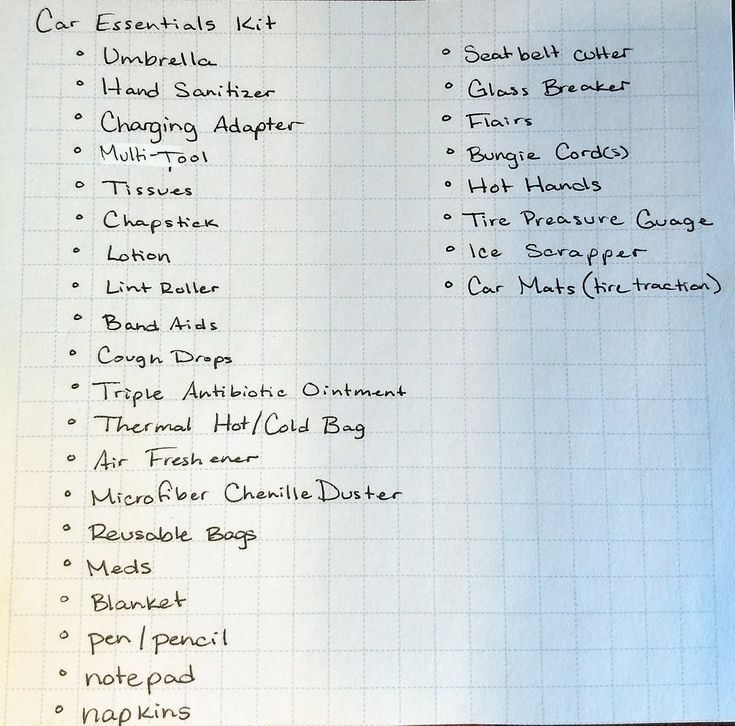 Car Essentials Kit
Umbrella
Hand Sanitizer
Charging Adapter
Multi-Tool
Tissues
Chapstick
Lotion
Lint Roller
Band Aids
Cough Drops
Triple Antibiotic Ointment
Thermal Hot/Cold Bag
Air Freshener
Microfiber Chenille Duster
Reusable Bags
Meds
Blanket
pen/pencil
notepad
napkins
Seatbelt cutter
Glass Breaker
Flairs
Bungie Cord(s)
Hot Hands
Tire Preasure Guage
Ice Scrapper
Car Mats (tire traction)